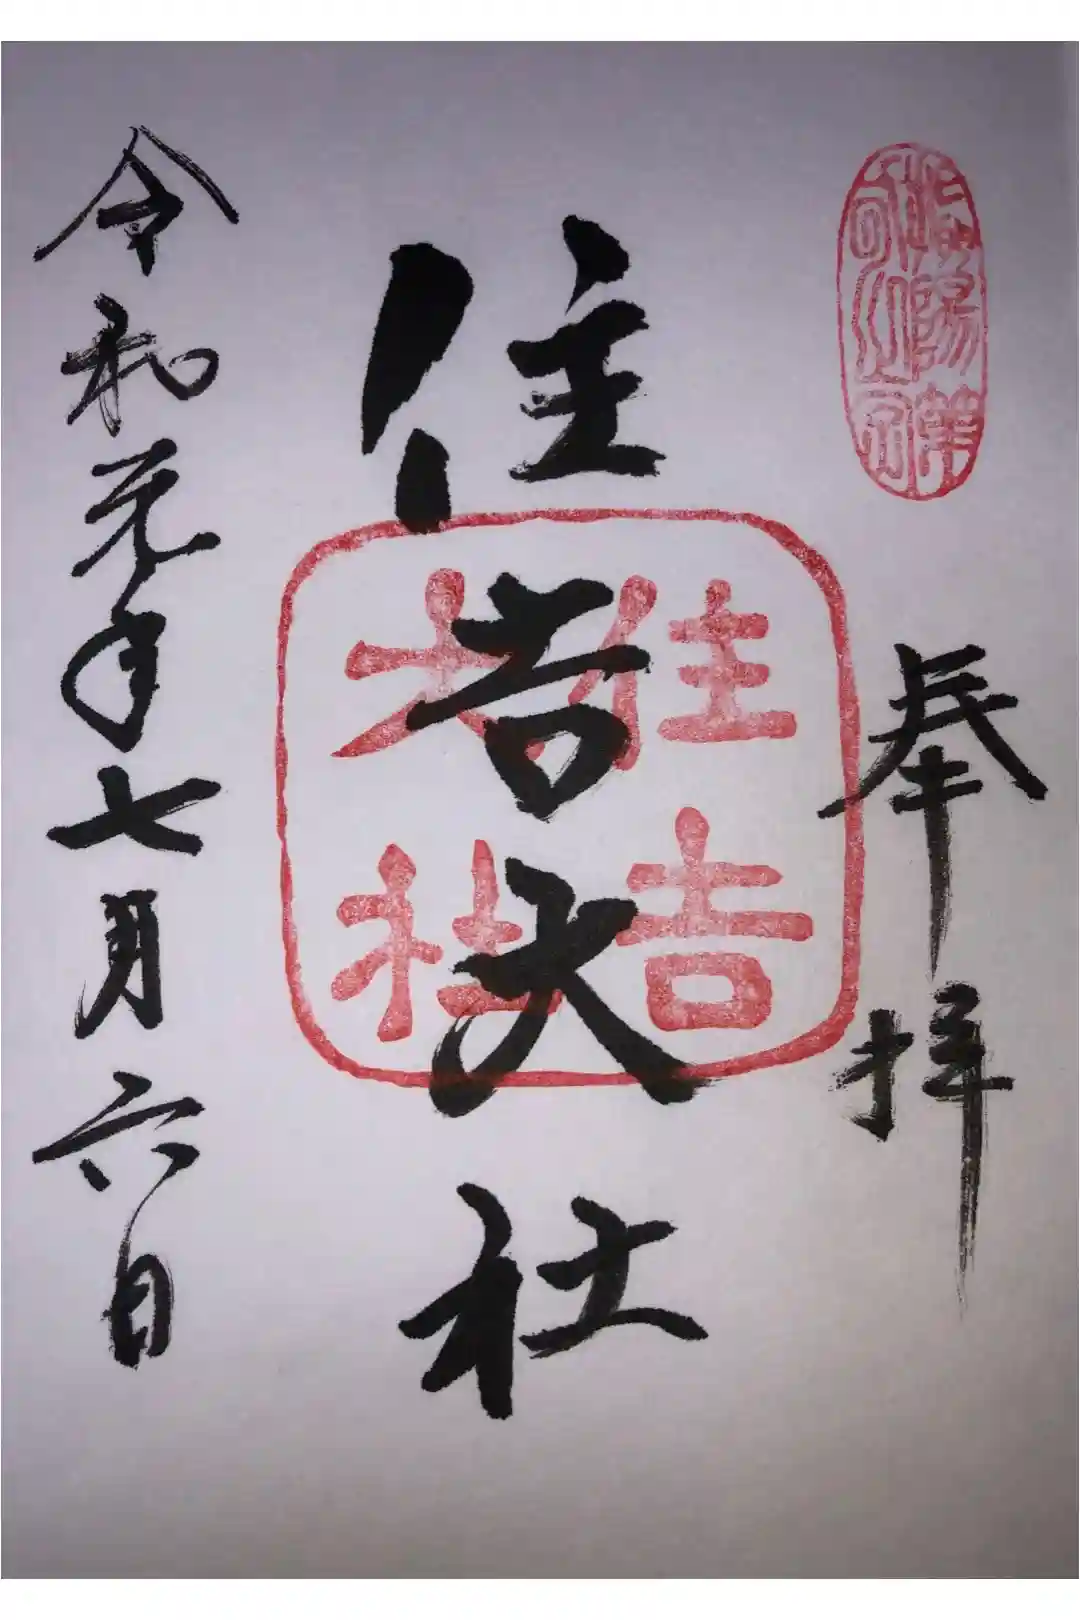 奉拝
住吉大社
住吉
大社
令和元年七月六日